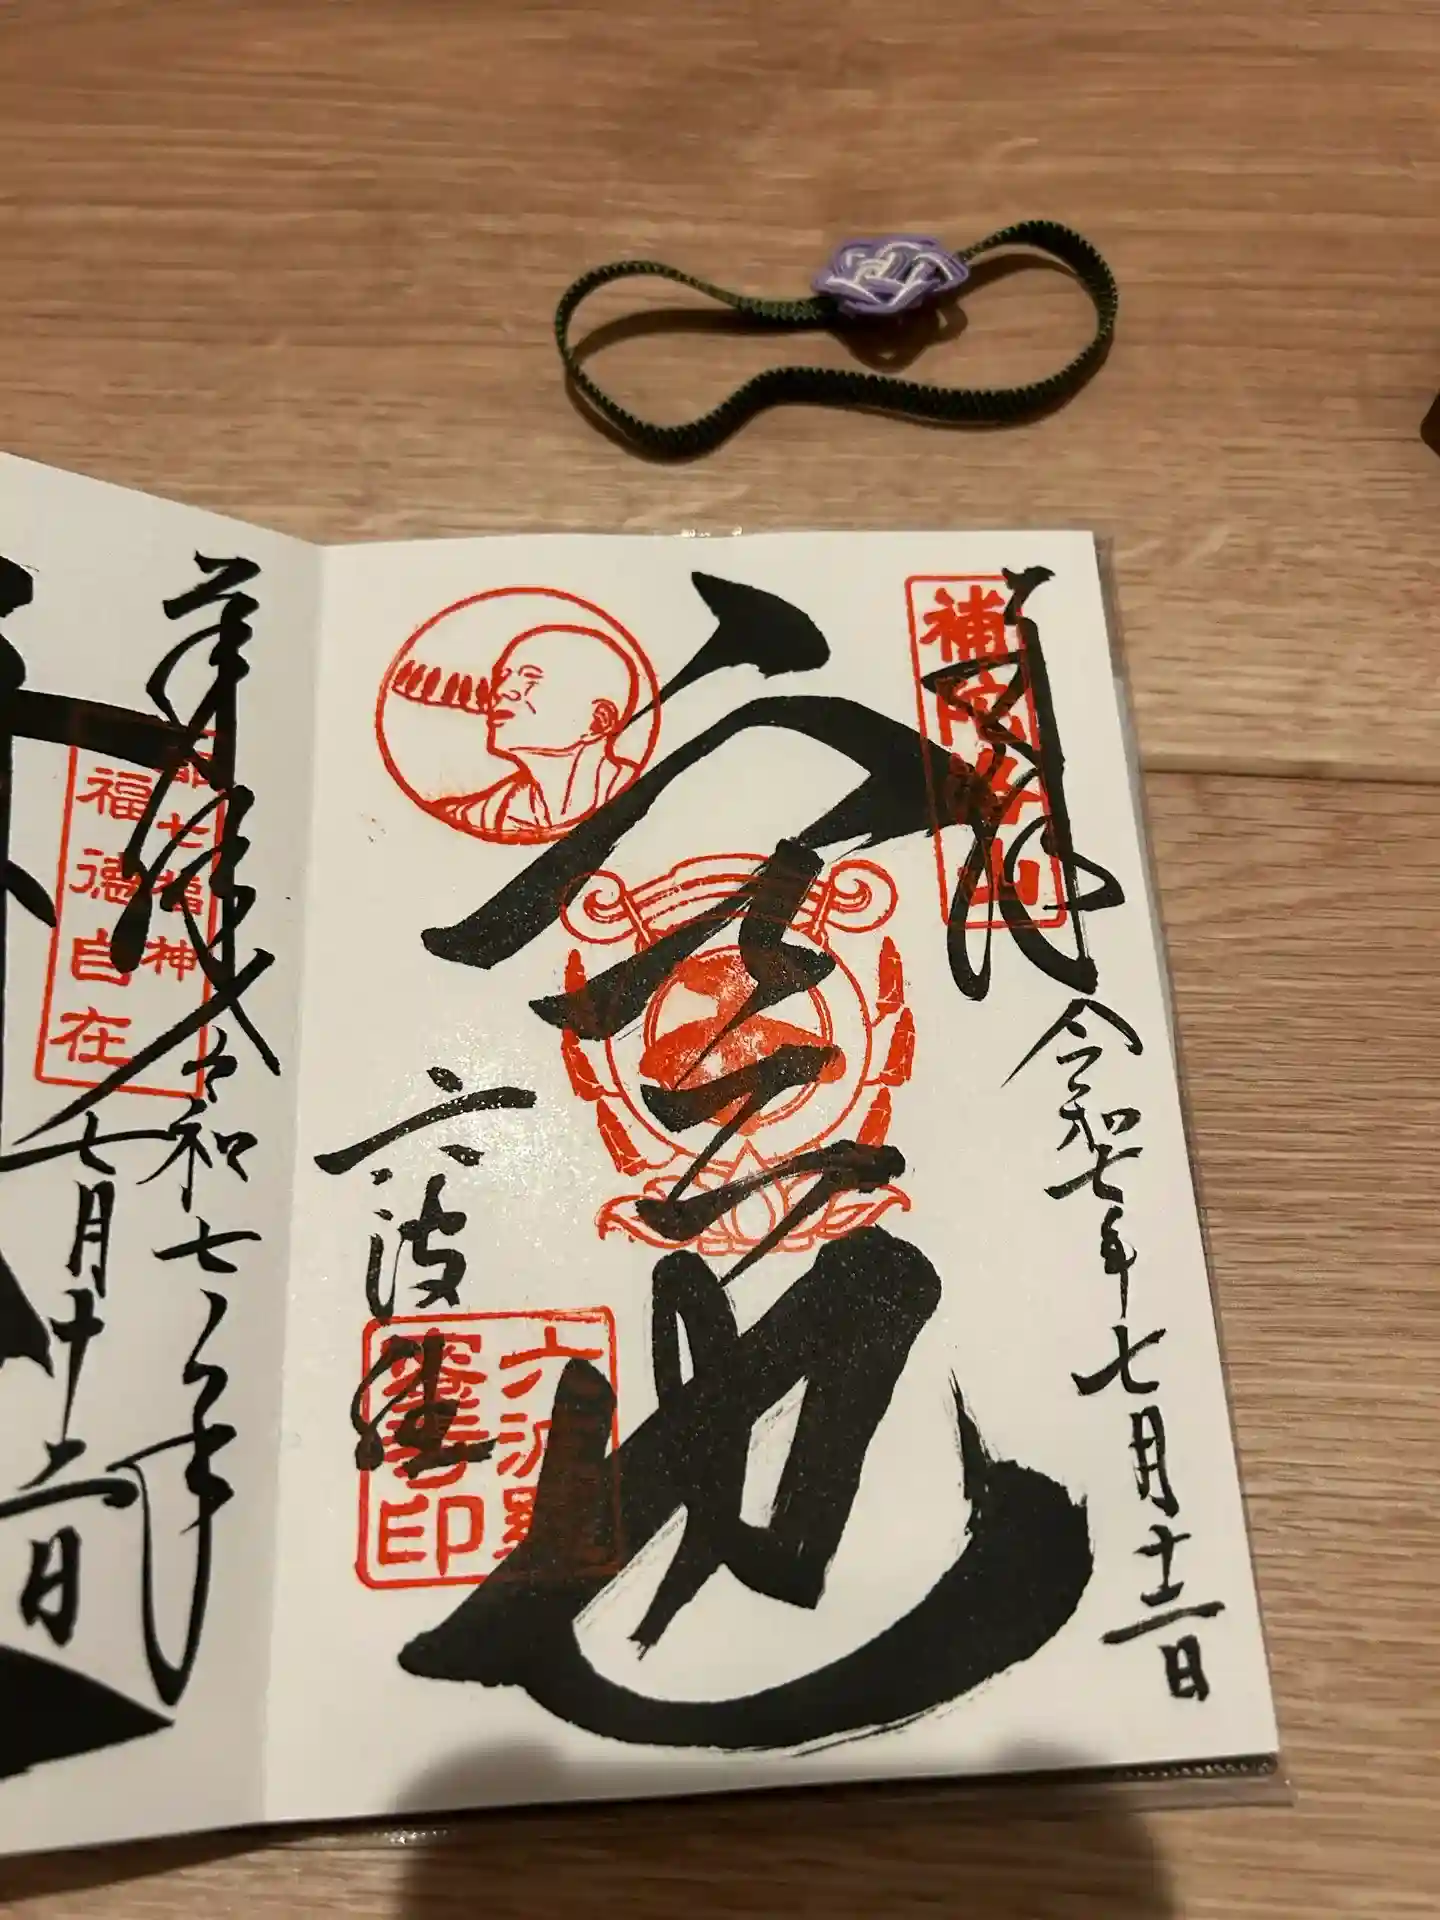 奉拝
補陀洛山
令和七年七月十二日
六波羅
六波羅蜜寺印
奉拝
令和七年
七月十二日
都七福神
福徳自在